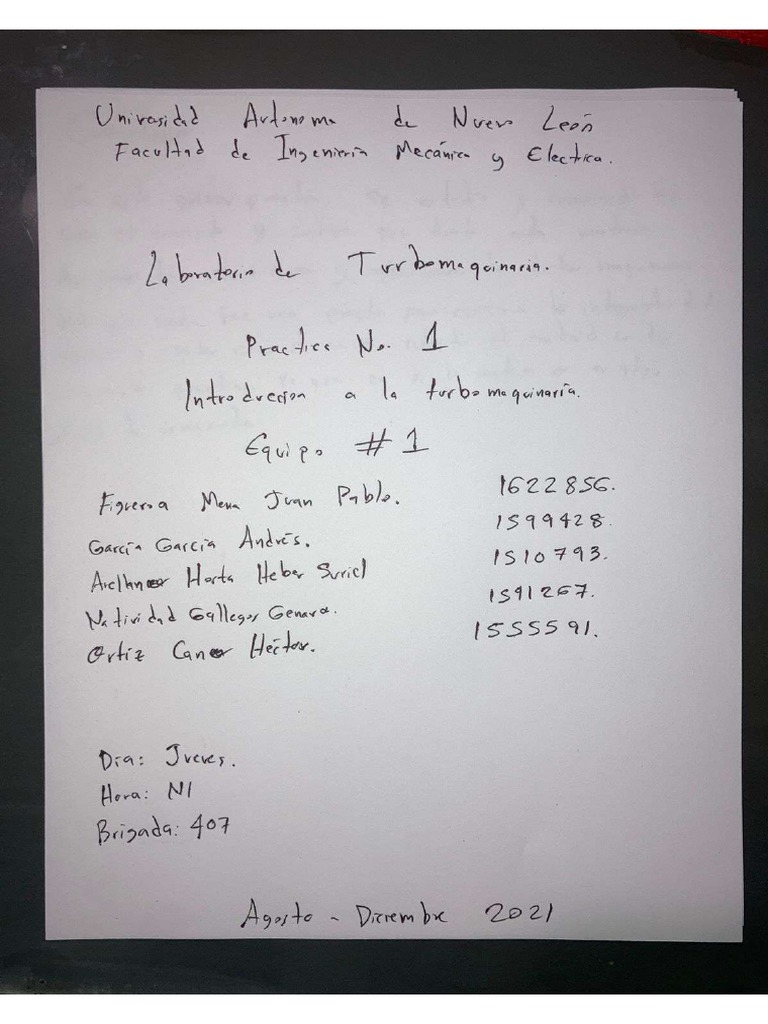 Univesidad Autonoma de Nuevo León
Facultad de Ingeniería Mecánica y Electrica.
Laboratorio de Turbomaquinaria.
Practica No. 1
Introduccion a la turbomaquinaría.
Equipo #1
Figueroa Mena Juan Pablo. 1622856.
García García Andrés. 1599428.
Arellano Horta Heber Suriel 1510793.
Natividad Gallegos Genaro. 1591267.
Ortiz Cano Héctor. 1555591.
Día: Jueves.
Hora: N1
Brigada: 407
Agosto - Diciembre 2021